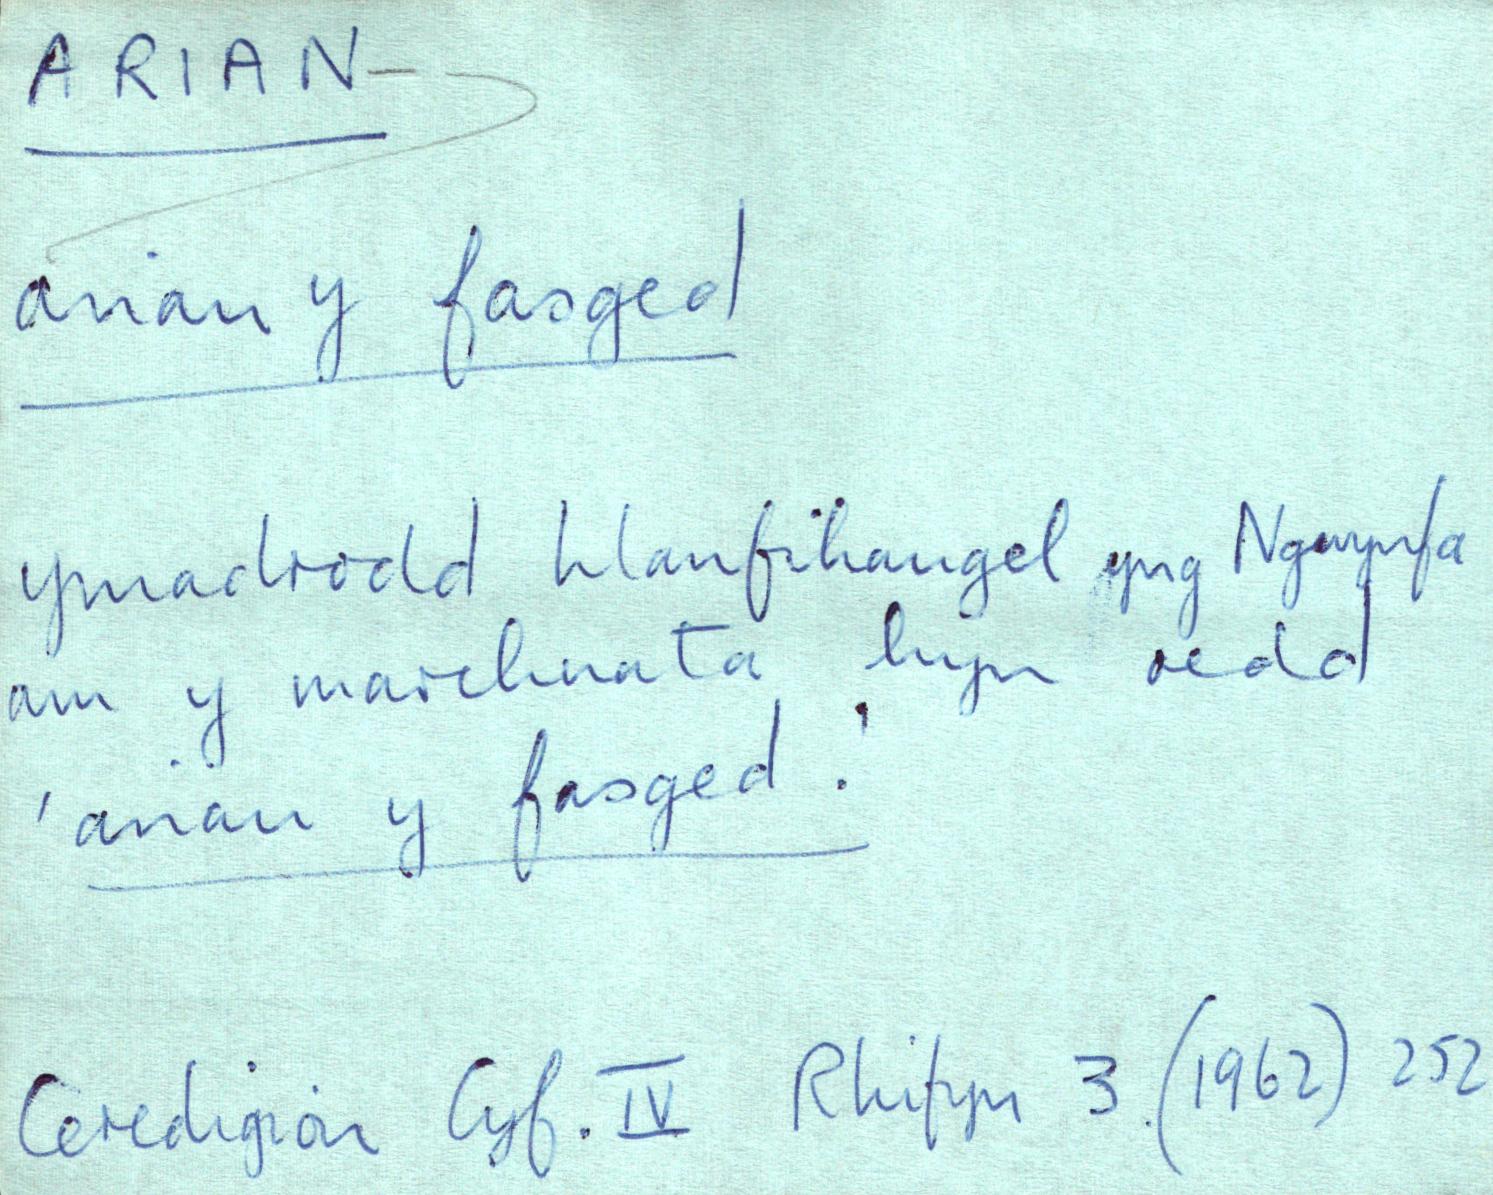 ARIAN-
arian y fasged
ymadrodd Llanfihangel yng Ngwynfa
am y marchnata hyn oedd
'arian y fasged.'
Ceredigion Cyf. IV Rhifyn 3 (1962) 252